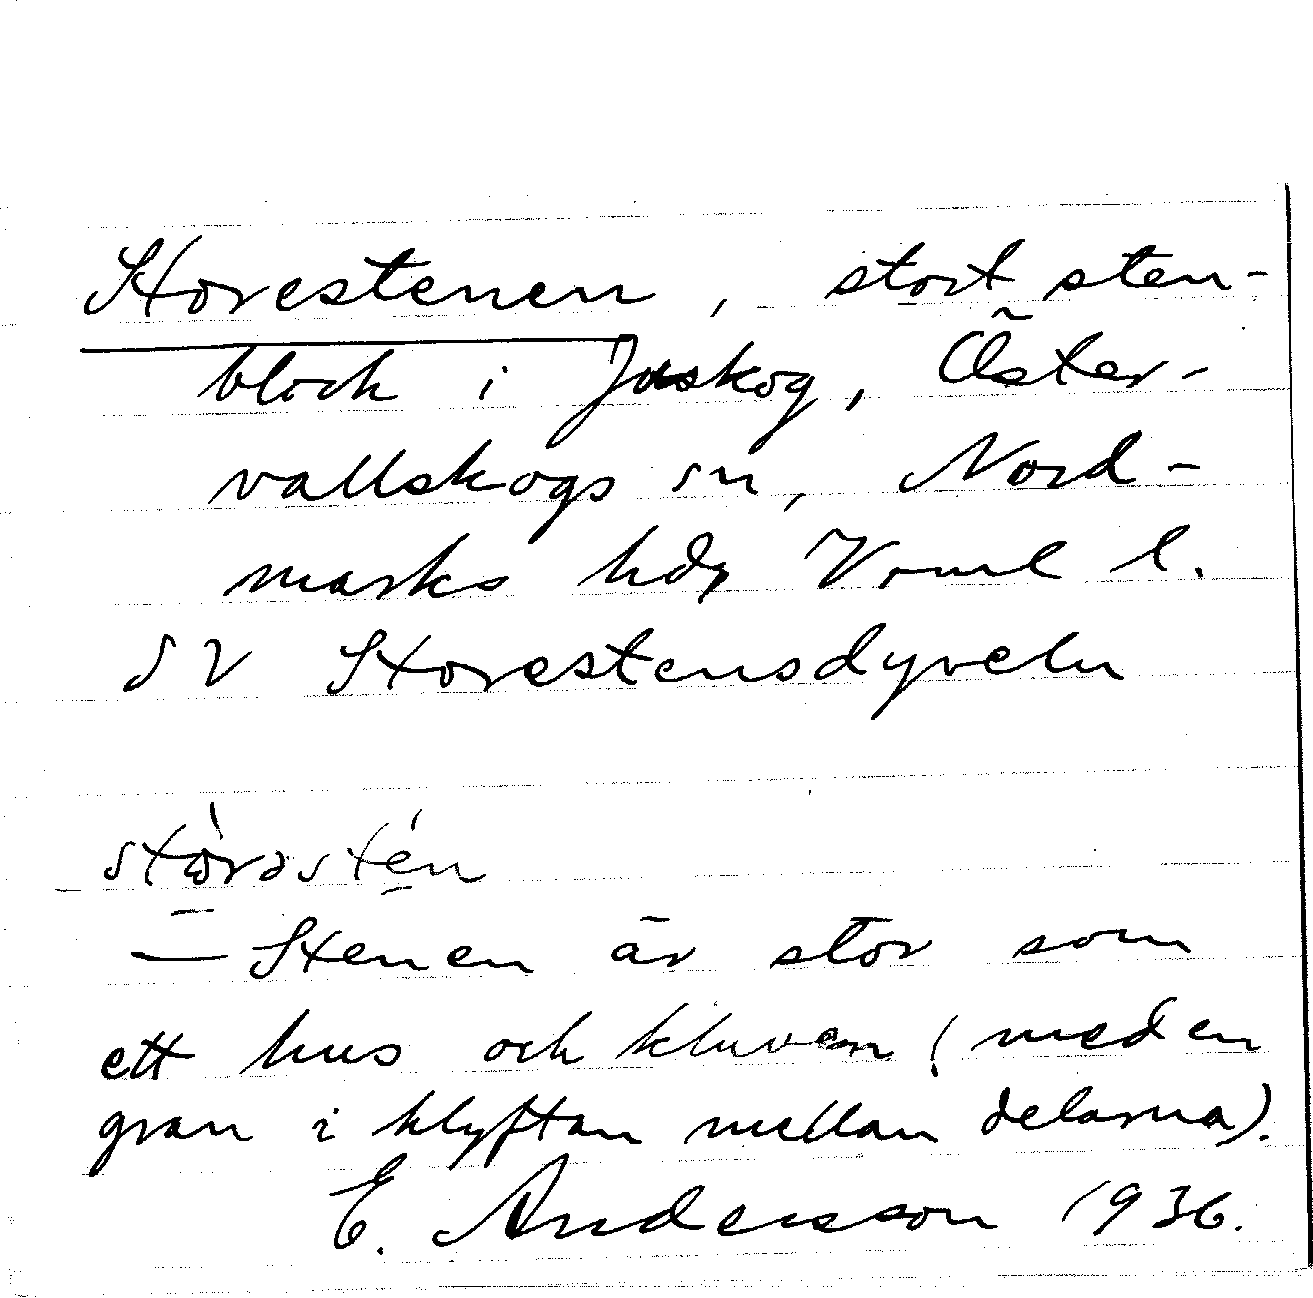 Storestenen, stort sten-
block i Joskog, Öster-
vallskogs sn, Nord-
marks hdr Vrml l.
SV Storestensdyveln
stòrəstén
— Stenen är stor som
ett hus och kluven (med en
gran i klyftan mellan delarna).
E. Andersson 1936.